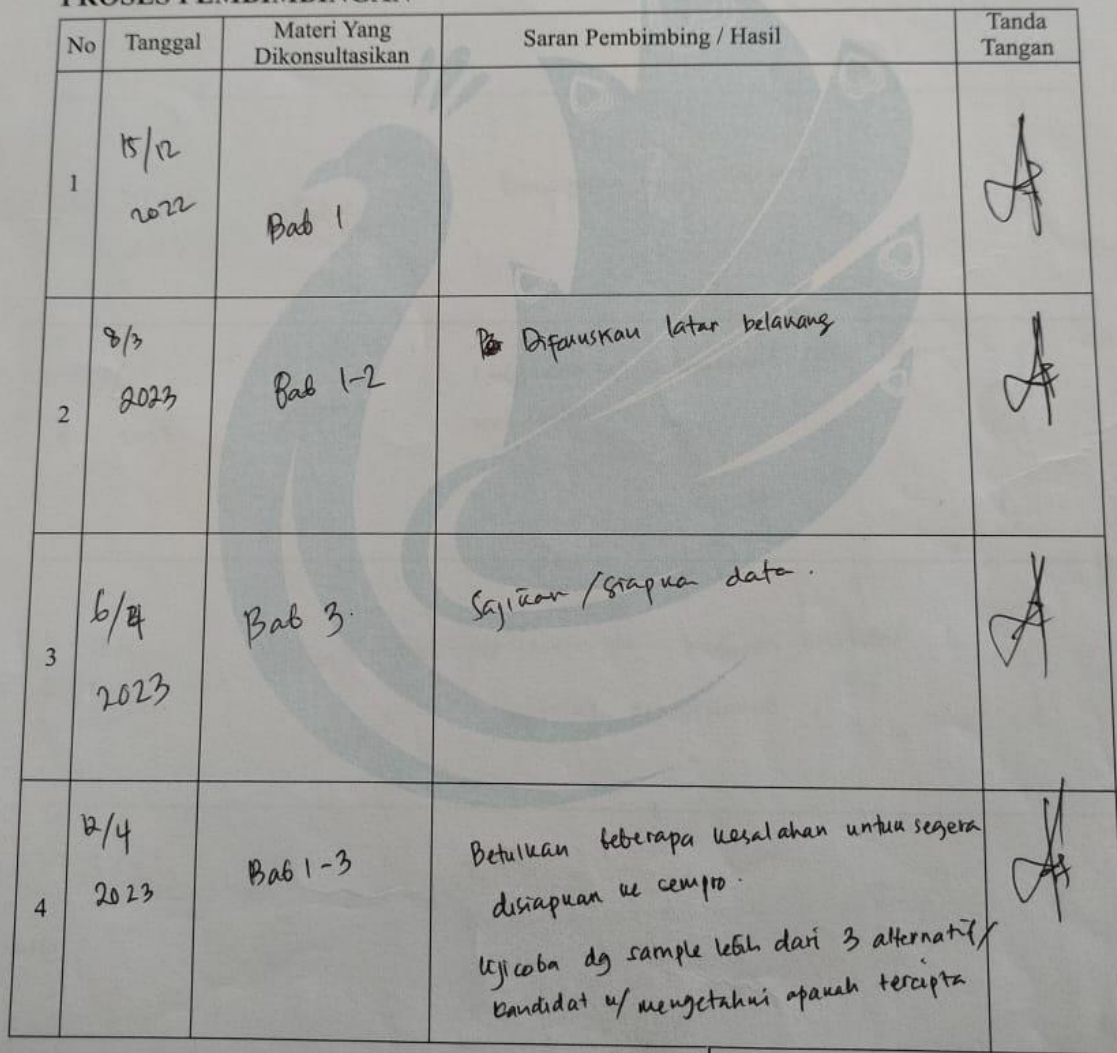 PROSES PEMBIMBINGAN
No Tanggal Materi Yang Dikonsultasikan Saran Pembimbing / Hasil Tanda Tangan
1
15/12
2022
Bab 1
2
8/3
2023
Bab 1-2
Difokuskan latar belakang
3
6/4
2023
Bab 3.
Sajikan / siapkan data.
4
12/4
2023
Bab 1-3
Betulkan beberapa kesalahan untuk segera
disiapkan ke sempro.
Ujicoba dg sample lebih dari 3 alternatif/
kandidat u/ mengetahui apakah tercipta